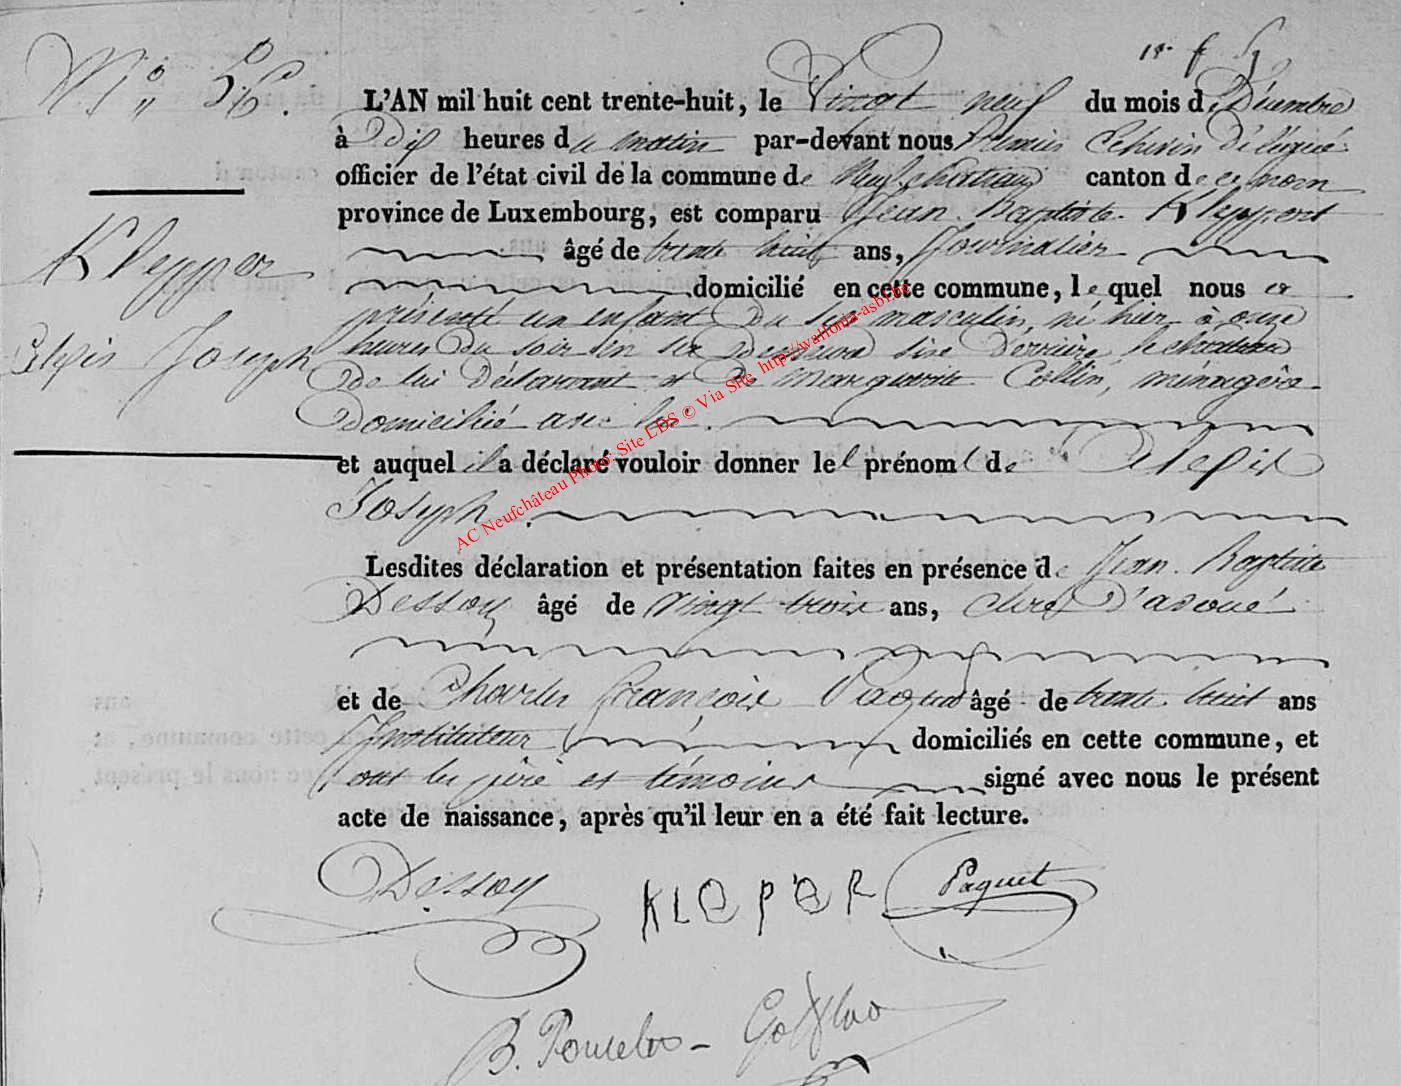 N° 56.
L'AN mil huit cent trente-huit, le Vingt neuf du mois de Décembre
à Dix heures du matin par-devant nous Premier Echevin Délégué
officier de l'état civil de la commune de Neufchâteau canton de ce nom
province de Luxembourg, est comparu Jean Baptiste Klepper
âgé de trente huit ans, Journalier
domicilié en cette commune, lequel nous a
présenté un enfant du sexe masculin, né hier à onze
heures du soir en sa demeure sise Derrière le château
de lui déclarant et de Marguerite Collin, ménagère
Domiciliée avec lui.
et auquel il a déclaré vouloir donner les prénoms de Alexis
Joseph.
Klepper
Alexis Joseph
Lesdites déclaration et présentation faites en présence de Jean Baptiste
Dessoy âgé de vingt trois ans, clerc d'avoué
et de Charles François Paquet âgé de trente huit ans
Instituteur domiciliés en cette commune, et
ont les père et témoins signé avec nous le présent
acte de naissance, après qu'il leur en a été fait lecture.
Dessoy KLEPER Paquet
B. Poncelet
AC Neufchâteau Photo: Site LDS © Via Site http://wallonia-asbl.be